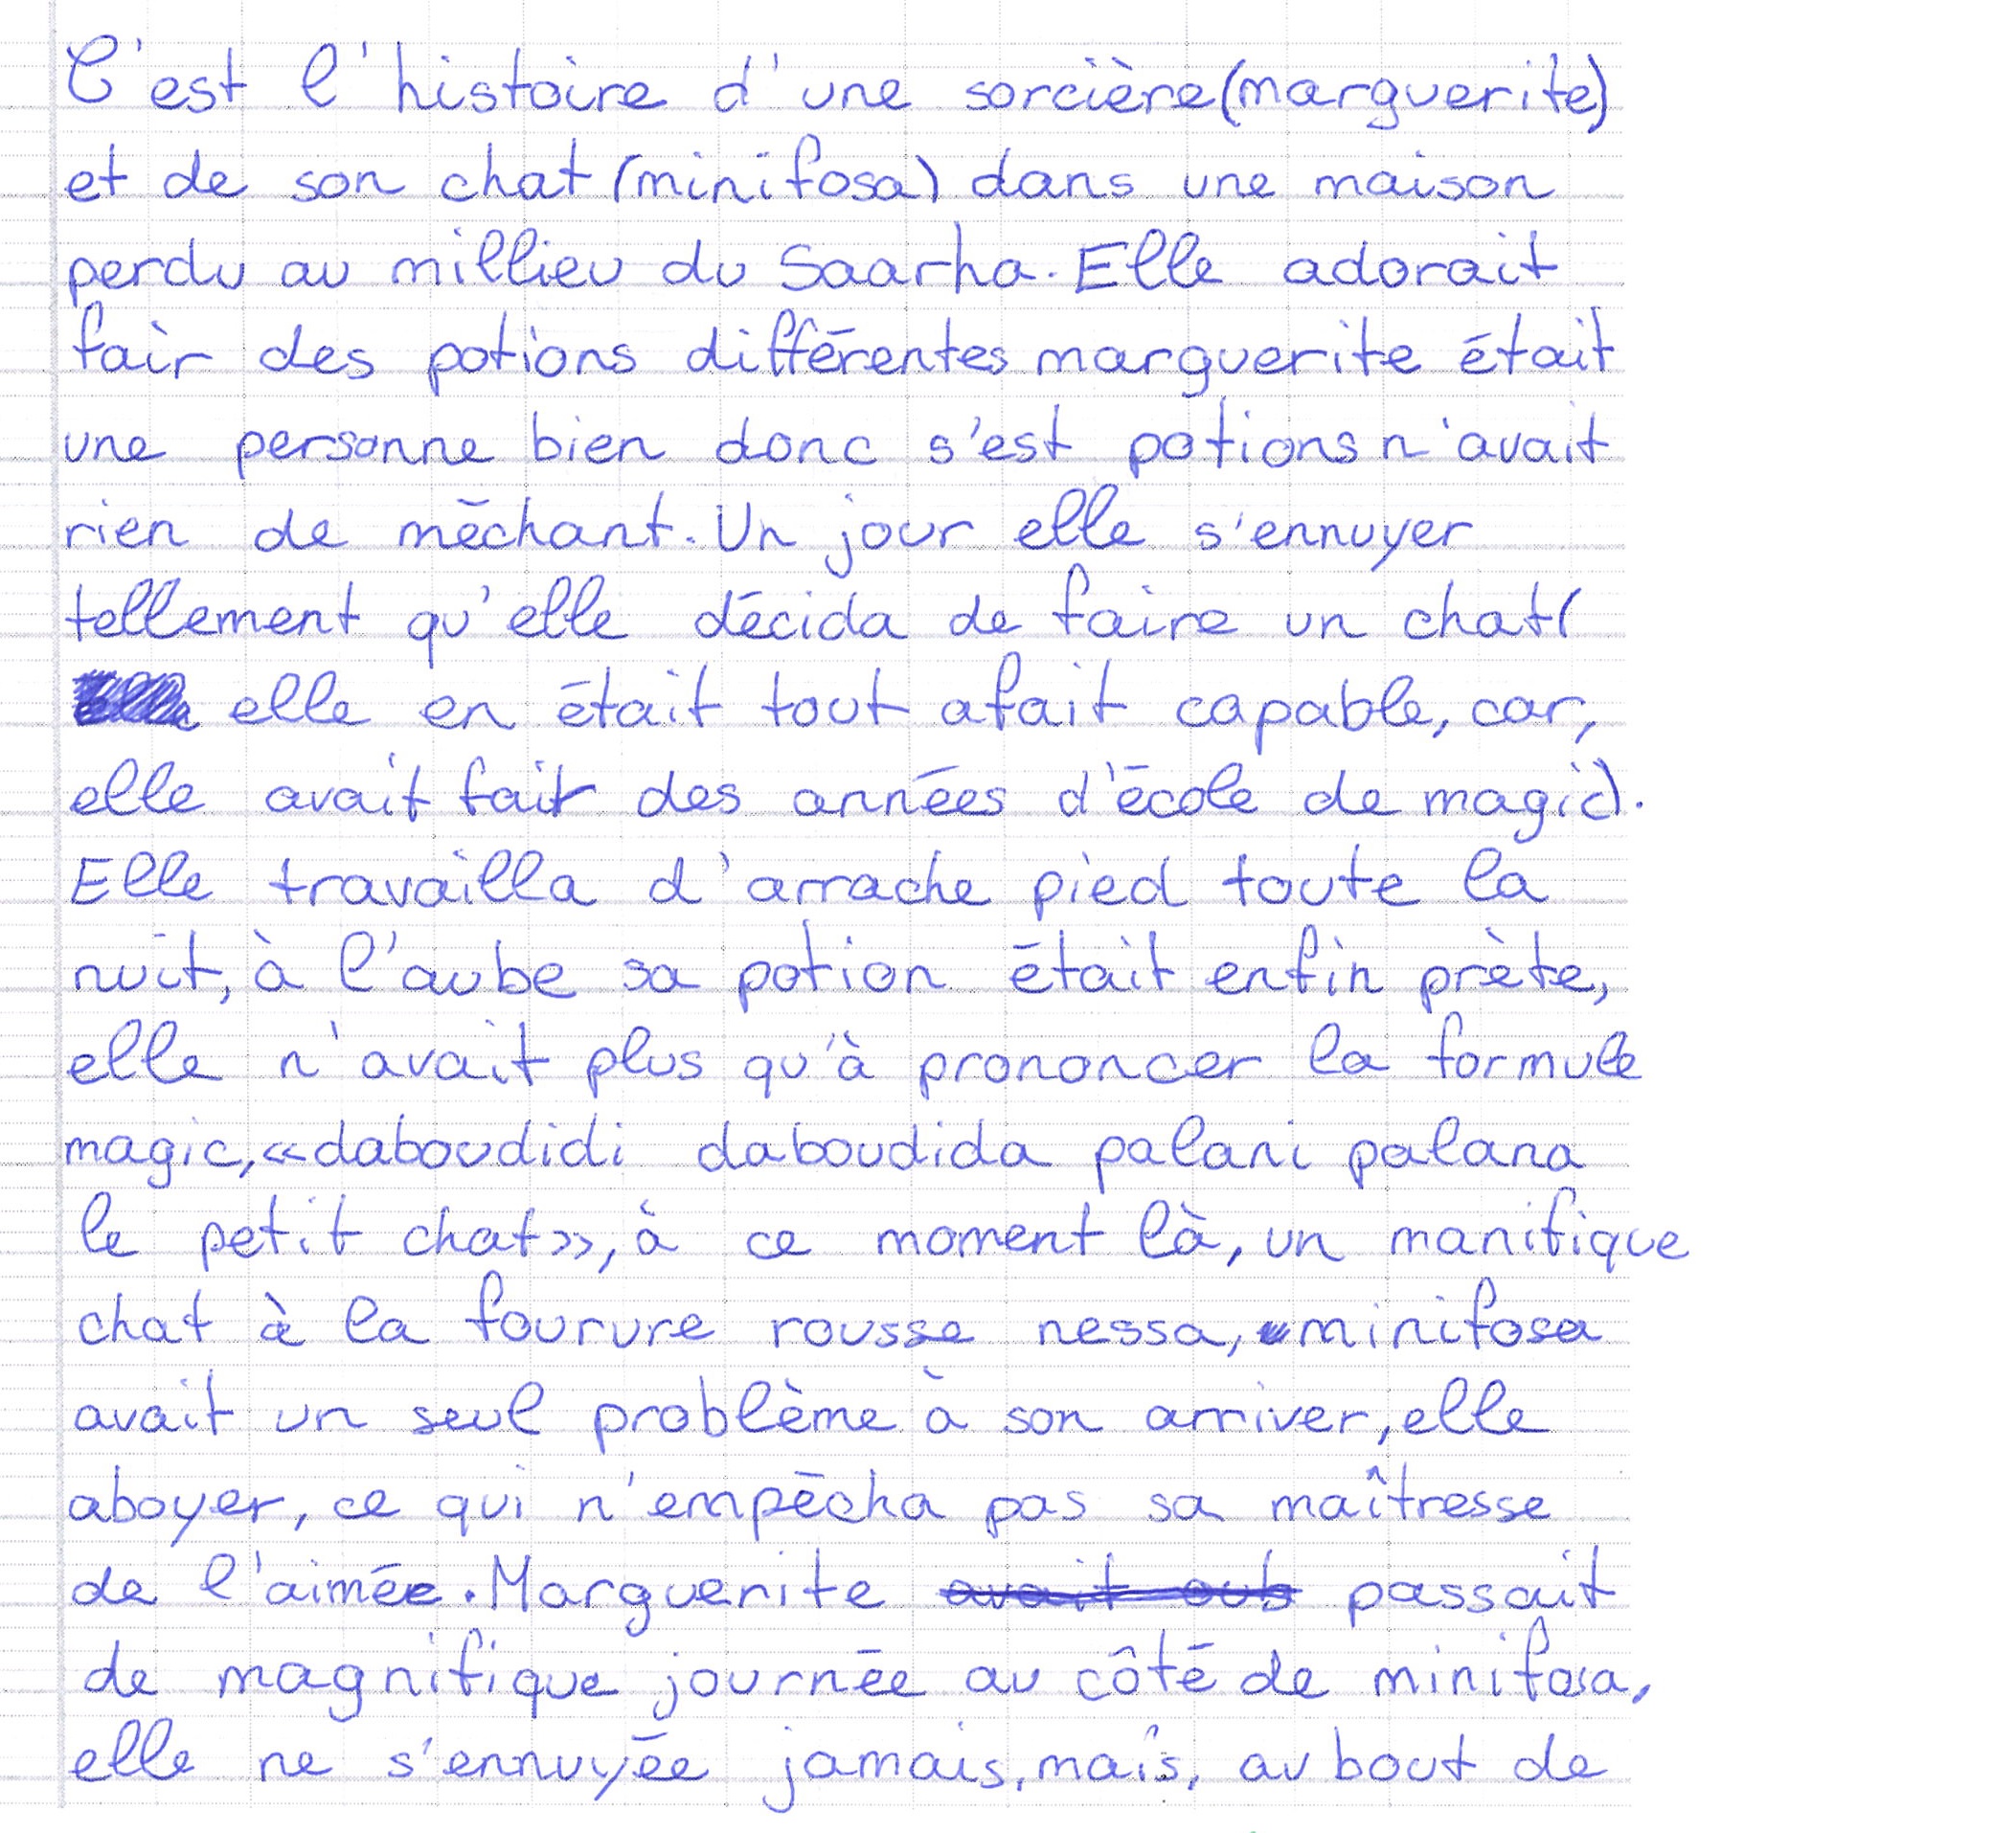 C'est l'histoire d'une sorcière(marguerite)
et de son chat (minifosa) dans une maison
perdu au millieu du Saarha. Elle adorait
fair des potions différentes marguerite était
une personne bien donc s'est potions n'avait
rien de méchant. Un jour elle s'ennuyer
tellement qu'elle décida de faire un chat(
elle en était tout afait capable, car,
elle avait fait des années d'école de magic).
Elle travailla d'arrache pied toute la
nuit, à l'aube sa potion était enfin prète,
elle n'avait plus qu'à prononcer la formule
magic, «daboudidi daboudida palani palana
le petit chat», à ce moment là, un manifique
chat à la fourure rousse nessa, minifosa
avait un seul problème à son arriver, elle
aboyer, ce qui n'empécha pas sa maîtresse
de l'aimée. Marguerite avait oub passait
de magnifique journée au côté de minifosa,
elle ne s'ennuyée jamais, mais, au bout de